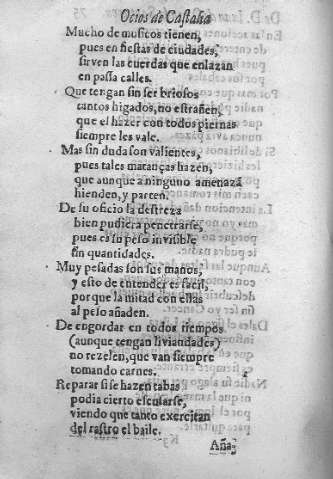 Ocios de Castalia
Mucho de musicos tienen,
pues en fiestas de ciudades,
sirven las cuerdas que enlazan
en passa calles.
Que tengan sin ser briosos
tantos higados, no estrañen,
que el hazer con todos piernas
siempre les vale.
Mas sin duda son valientes,
pues tales matanças hazen,
que aunque a ninguno amenazã
hienden, y parten.
De su oficio la destreza
bien pudiera penetrarse,
pues es su peso invisible
sin quantidades.
Muy pesadas son sus manos,
y esto de entender es facil,
porque la mitad con ellas
al peso añaden.
De engordar en todos tiempos
(aunque tengan liviandades)
no rezelen, que van siempre
tomando carnes.
Reparar si se hazen tabas
podia cierto escusarse,
viendo que tanto exercitan
del rastro el baile.
Aña